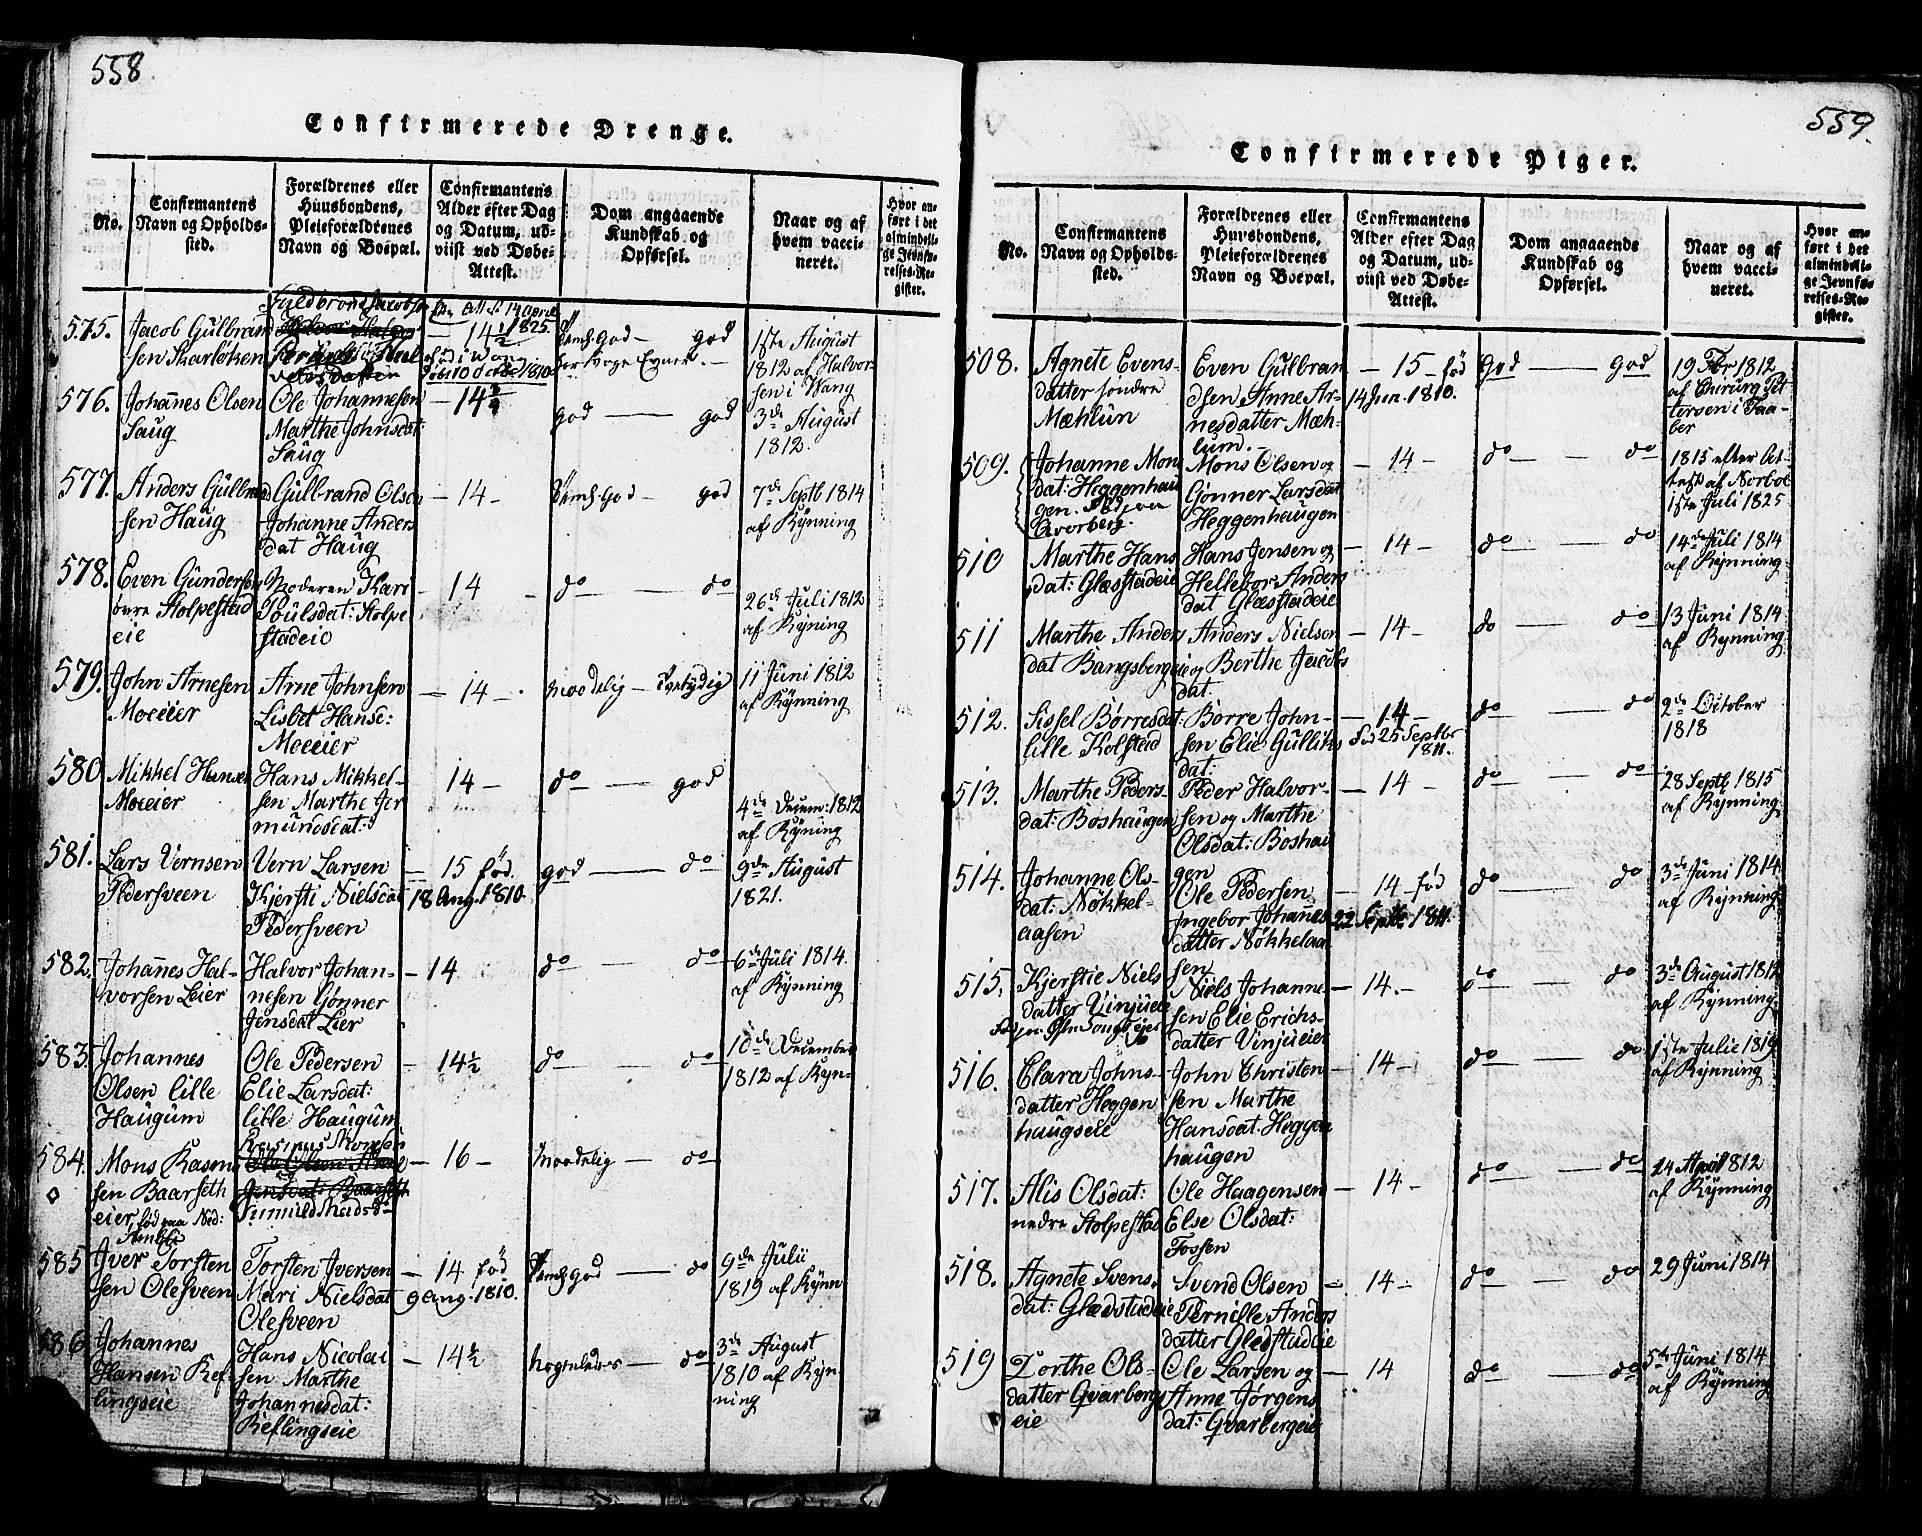 558
Confirmerede Drenge.
No.
Confirmantens
Navn og Opholds-
sted.
Forældrenes eller
Huusbondens,
Pleieforældrenes
Navn og Boepæl.
Confirmantens
Alder efter Dag
og Datum, ud-
viist ved Døbe-
Attest.
Dom angaaende
Kundskab og
Opførsel.
Naar og af
hvem vacci-
neret.
Hvor an-
ført i det
almindeli-
ge Jevnfø-
relses-Re-
gister.
575.
Jacob Gulbran
sen Skarløken
14½
God — God
1ste August
1812 af Halvor-
sen i Wang
576.
Johannes Olsen
Saug
Ole Johannesen
Marthe Johnsdat:
Saug
— 14¾
God — God
3de August
1812.
577.
Anders Gulbrand
sen Haug
Gulbrand Olsen
Johanne Anders
dat Haug
— 14 —
God — God
7de Septb 1814
af Kynning
578.
Even Gundersen
øvre Stolpestad
eie
Moderen Kari
Poulsdat: Stolpe
stadeie
14
do — do
26de Juli 1812
af Kyning
579.
John Arnesen
Moeeier
Arne Johnsen
Lisbet Hansd:
Moeeier
— 14 —
maadelig —
11 Juni 1812
af Kynning
580
Mikkel Hansen
Moeeier
Hans Mikkel-
sen Marthe Jer
mundsdat:
14 —
do — god
4de Decem: 1812
af Kyning
581.
Lars Vernsen
Pedersveen
Vern Larsen
Kjersti Nielsdat
Pedersveen
— 15 fød
18 Aug. 1810.
god — do
9de August
1821.
582.
Johannes Hal-
vorsen Leier
Halvor Johan-
nesen Gønner
Jensdat Leier
— 14
do — do
6de Juli 1814.
af Kynning
583.
Johannes
Olsen lille
Haugum
Ole Pedersen
Elie Larsdat:
lille Haugum
— 14½
do — do
10de December
1812 af Kyn-
584.
Mons Rasmu
sen Baarseth
eier fød paa Ned:
— 16 —
Maadelig — do
585
Iver Torsten
sen Olesveen
Torsten Iversen
Mari Nielsdat
Olesveen
— 14 fød
9 Aug. 1810.
god — do
9de Julii
1819 af Kynn
586
Johannes
Hansen Kef
lingseie
Hans Nicolai
sen Marthe
Johannesdat:
Keflingseie
— 14½
do
3de August
1810 af Kyn
ning
559.
Confirmerede Piger.
No.
Confirmantens
Navn og Opholds-
sted.
Forældrenes eller
Huusbondens,
Pleieforældrenes
Navn og Boepæl.
Confirmantens
Alder efter Dag
og Datum, ud-
viist ved Døbe-
Attest.
Dom angaaende
Kundskab og
Opførsel.
Naar og af
hvem vacci-
neret.
Hvor an-
ført i det
almindeli-
ge Jevnfø-
relses-Re-
gister.
508.
Agnete Evens-
datter søndre
Mæhlun
Even Gulbran
dsen Anne Ar-
nesdatter Mæh-
lum.
— 15 — fød
14 Jun. 1810.
God — God
19 Fbr 1812
af Chirurg Pet
tersen i Faa-
ber
509.
Johanne Mons
dat: Heggenhau
gen.
Mons Olsen og
Gønner Larsdat
Heggenhaugen
— 14 —
do — do
1815 efter At-
test af Norboe
1ste Juli 1825
510
Marthe Hans
dat: Glæsstadeie
Hans Jensen og
Hellebor Anders
dat Glæsstadeie
— 14 —
do — do
14de Juli 1814
af Kynning
511
Marthe Anders
dat Bangsbergeie
Anders Nielsen
og Berthe Jacobs
dat.
— 14 —
do — do
13 Juni 1814
af Kynning
512.
Sissel Børresdat:
lille Kolstad
Børre John-
sen Elie Gulliks
dat:
— 14 —
fød 25 Septbr
1811.
do — do
2de October
1818
513.
Marthe Peders-
dat: Boshaugen
Peder Halvor-
sen og Marthe
Olsdat: Boshau
gen
— 14 —
do — do
28 Septb 1815
af Kynning
514.
Johanne Ols-
dat: Nøkkel-
aasen
Ole Pedersen
Ingebor Johannes
datter Nøkkelaa
sen
— 14 — fød
22 Septbr 1811.
do — do
3de Juni 1814
af Kynning
515.
Kjerstie Niels
datter Vinjueie
Niels Johanne-
sen Elie Erichs-
datter Vinjueie
— 14. —
do — do
3de August 1812
af Kynning
516.
Clara Johns-
datter Heggen
haugseie
John Christen
sen Marthe
Hansdat: Heggen
haugen
— 14 —
do — do
1ste Julie 1819
af Kynning
517.
Alis Olsdat:
nedre Stolpestad
Ole Haagensen
Else Olsdat:
Fossen
— 14 —
do — do
24 April 1812
af Kynning
518.
Agnete Svens-
dat: Glædstudeie
Svend Olsen
Pernille Anders
datter Gledstudeie
— 14 —
do — do
29 Juni 1814
519
Dorthe Ols-
datter Qvarbergs
eie
Ole Larsen og
Anne Jørgens
dat: Qvarbergeie
— 14
do — do
5te Juni 1814
af Kynning